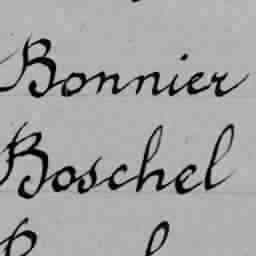 Bonnier
Boschel